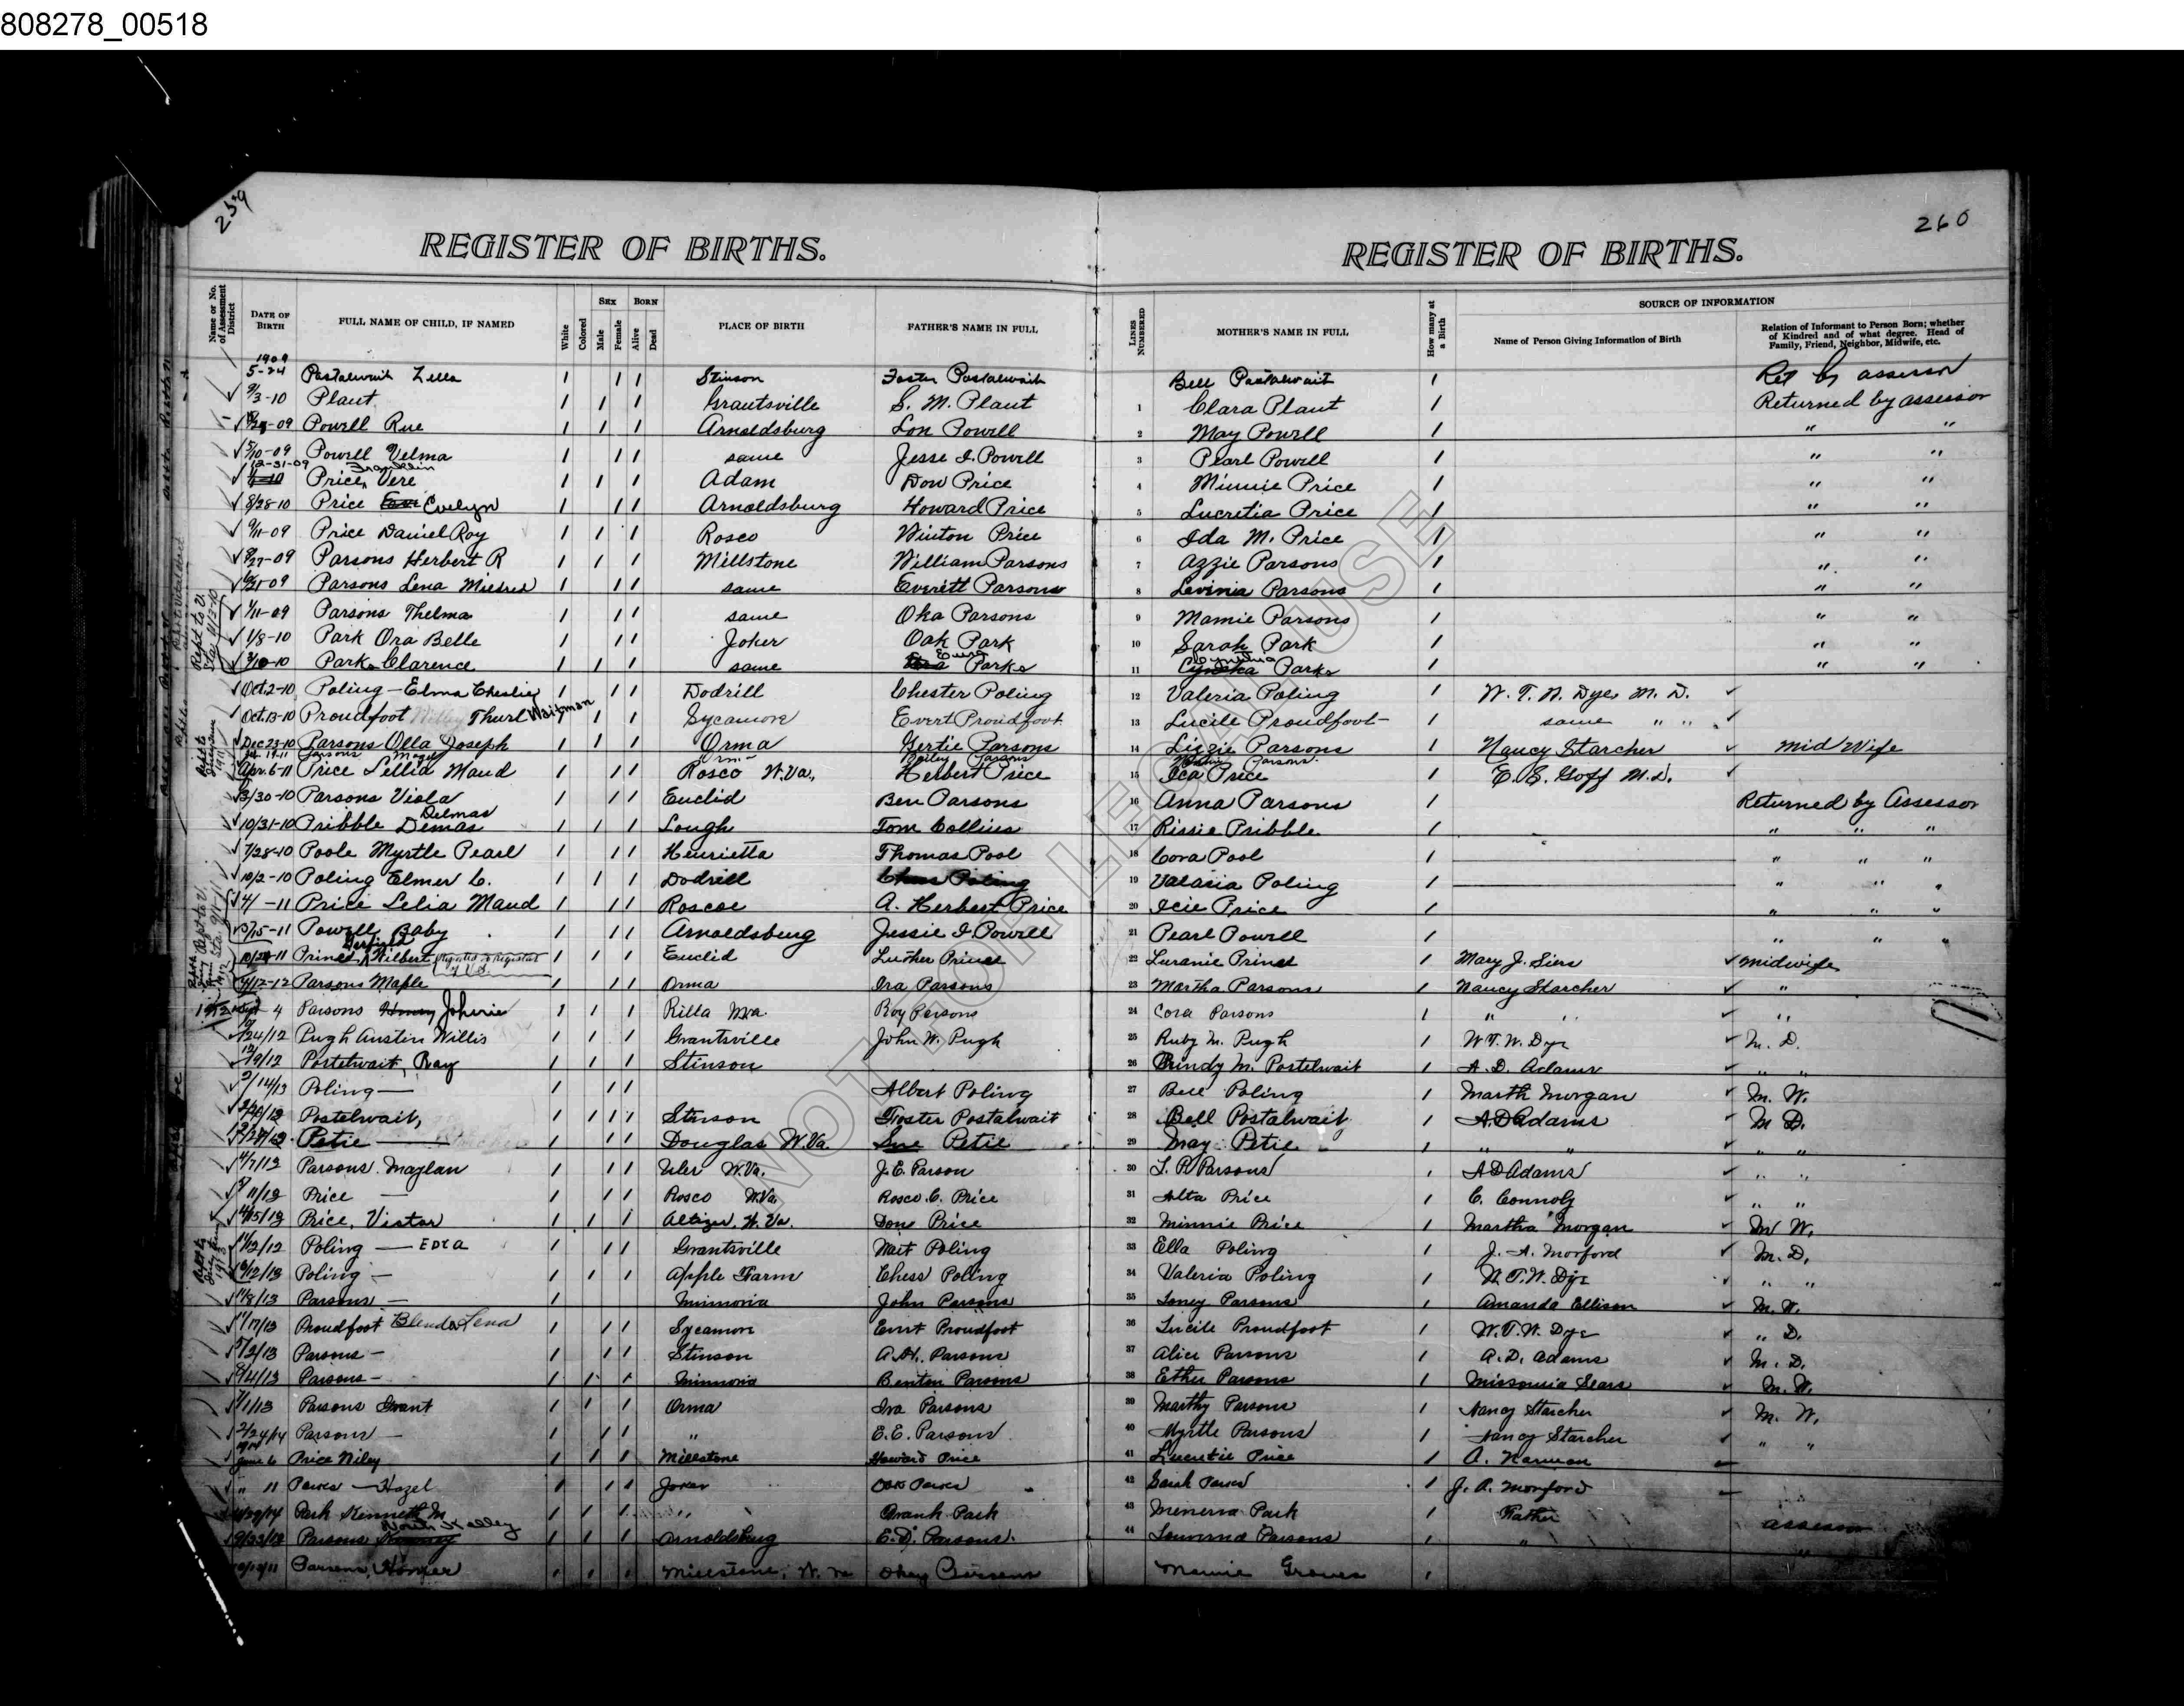 808278_00518
259
260
REGISTER OF BIRTHS. REGISTER OF BIRTHS.
Name or No. of Assessment District
DATE OF BIRTH
FULL NAME OF CHILD, IF NAMED
White
Colored
SEX
Male
Female
BORN
Alive
Dead
PLACE OF BIRTH
FATHER'S NAME IN FULL
LINES NUMBERED
MOTHER'S NAME IN FULL
How many at a Birth
SOURCE OF INFORMATION
Name of Person Giving Information of Birth
Relation of Informant to Person Born; whether of Kindred and of what degree. Head of Family, Friend, Neighbor, Midwife, etc.
1909
5-24 Postalwait Zella 1 1 1 Stinson Foster Postalwait Bell Postalwait 1 Ret by assessor
9/3-10 Plant 1 1 1 Grantsville S. M. Plant 1 Clara Plant 1 Returned by assessor
Powell Rue 1 1 1 Arnoldsburg Lon Powell 2 May Powell 1 " "
5/10-09 Powell Velma 1 1 1 same Jesse I. Powell 3 Pearl Powell 1 " "
12-31-09 Franklin
Price, Vere 1 1 1 Adam Dow Price 4 Minnie Price 1 " "
8/28-10 Price Evelyn 1 1 1 Arnoldsburg Howard Price 5 Lucretia Price 1 " "
9/11-09 Price Daniel Roy 1 1 1 Rosco Winton Price 6 Ida M. Price 1 " "
9/27-09 Parsons Herbert R 1 1 1 Millstone William Parsons 7 Azzie Parsons 1 " "
Parsons Lena Mildred 1 1 1 same Everitt Parsons 8 Levinia Parsons 1 " "
1/11-09 Parsons Thelma 1 1 1 same Oka Parsons 9 Mamie Parsons 1 " "
1/8-10 Park Ora Belle 1 1 1 Joker Oak Park 10 Sarah Park 1 " "
3/10-10 Parks Clarence 1 1 1 same Parks 11 Cynthia Parks 1 " "
Oct.2-10 Poling - Elma Cheslie 1 1 1 Dodrill Chester Poling 12 Valeria Poling 1 W. T. W. Dye, M. D.
Oct.13-10 Proudfoot Thurl Waitman 1 1 1 Sycamore Evert Proudfoot 13 Lucile Proudfoot 1 same " "
Dec 23-10 Parsons Olla Joseph 1 1 1 Orma Gertie Parsons 14 Lizzie Parsons 1 Nancy Starcher Mid Wife
Parsons Orma Bailey Parsons Parsons
Apr. 6-11 Price Lellia Maud 1 1 1 Rosco W.Va., Herbert Price 15 Ica Price 1 E. S. Goff M.D.
3/30-10 Parsons Viola 1 1 1 Euclid Ben Parsons 16 Anna Parsons 1 Returned by Assessor
Delmas
10/31-10 Pribble Demas 1 1 1 Lough Tom Collins 17 Rissie Pribble 1 " " "
7/28-10 Poole Myrtle Pearl 1 1 1 Henrietta Thomas Pool 18 Cora Pool 1 " " "
10/2-10 Poling Elmer C. 1 1 1 Dodrill Chess Poling 19 Valaria Poling 1 " " "
4/ -11 Price Lelia Maud 1 1 1 Roscoe A. Herbert Price 20 Icie Price 1 " " "
3/15-11 Powell Baby 1 1 1 Arnoldsburg Jessie I. Powell 21 Pearl Powell 1 " " "
Prince, Wilbert 1 1 1 Euclid Luther Prince 22 Luranie Prince 1 Mary J. Siers midwife
4/12-12 Parsons Maple 1 1 1 Orma Ira Parsons 23 Martha Parsons 1 Nancy Starcher "
1912 Sept 4 Parsons Johnie 1 1 1 Rilla W.va. Roy Parsons 24 Cora Parsons 1 " " "
9/24/12 Pugh Austin Willis 1 1 1 Grantsville John W. Pugh 25 Ruby M. Pugh 1 W.T.W. Dye M. D.
12/9/12 Postelwait, Ray 1 1 1 Stinson 26 Brindy M. Postelwait 1 A. D. Adams " "
2/14/13 Poling 1 1 1 Albert Poling 27 Bell Poling 1 Marth Morgan M. W.
Postelwait, 1 1 1 1 Stinson Foster Postalwait 28 Bell Postalwait 1 A.D Adams M D.
Petie 1 1 1 Douglas W.Va. Petie 29 May Petie 1 " " " "
4/7/13 Parsons Maylan 1 1 1 W.Va. J.E. Parson 30 Parsons 1 A D Adams " "
11/13 Price 1 1 1 Rosco W.Va. Rosco C. Price 31 Alta Price 1 C. Connoly " "
4/15/13 Price, Victor 1 1 1 Altizer, W. Va. Don Price 32 Minnie Price 1 Martha Morgan M W.
1/2/12 Poling - EDRA 1 1 1 Grantsville Wait Poling 33 Ella Poling 1 J. A. Morford M. D.
6/12/13 Poling - 1 1 1 Apple Farm Chess Poling 34 Valeria Poling 1 W.T.W. Dye " "
11/8/13 Parsons - 1 Minnoria John Parsons 35 Toney Parsons 1 Amanda Ellison M. W.
11/17/13 Proudfoot Blenda Lena 1 1 1 Sycamore Evert Proudfoot 36 Lucile Proudfoot 1 W.T.W. Dye " D.
5/2/13 Parsons - 1 1 1 Stinson A.H. Parsons 37 Alice Parsons 1 A. D. Adams M. D.
8/4/13 Parsons - 1 1 1 Minnoria Benton Parsons 38 Esther Parsons 1 Missouria Sears M. W.
7/1/13 Parsons Grant 1 1 1 Orma Ira Parsons 39 Marthy Parsons 1 Nancy Starcher M. W.
2/24/14 Parsons - 1 1 1 " E.E. Parsons 40 Myrtle Parsons 1 Nancy Starcher " "
June 6 Price Wiley 1 1 1 Millstone Howard Price 41 Lucretie Price 1 A. Norman
" 11 Parks - Hazel 1 1 1 Joker Oak Parks 42 Sarah Parks 1 J. A. Morford
Park Kenneth M. 1 1 1 " Frank Park 43 Menerva Park 1 Father assessor
Parsons Kelley 1 1 1 Arnoldsburg E. D. Parsons 44 Parsons 1 " "
Parsons, Homer 1 1 1 Millstone, W. Va Okey Parsons Mamie Groves 1
NOT FOR LEGAL USE